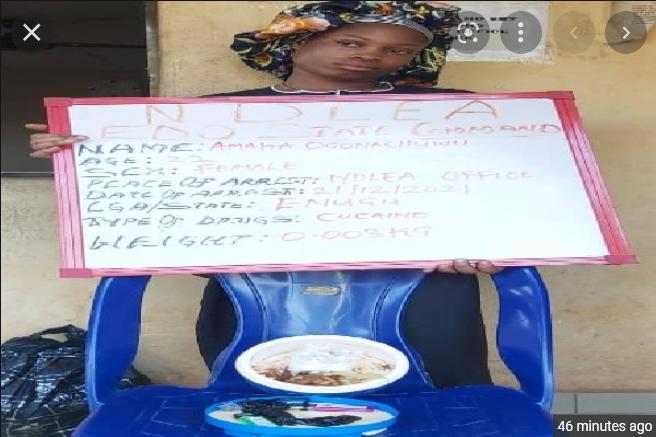 NDLEA
EDO STATE COMMAND
NAME: AMAKA OGONACHUKWU
AGE: 22
SEX: FEMALE
PLACE OF ARREST: NDLEA OFFICE
DATE OF ARREST: 21/12/2021
LGA/STATE: ENUGU
TYPE OF DRUGS: COCAINE
WEIGHT: 0.003KG
46 minutes ago